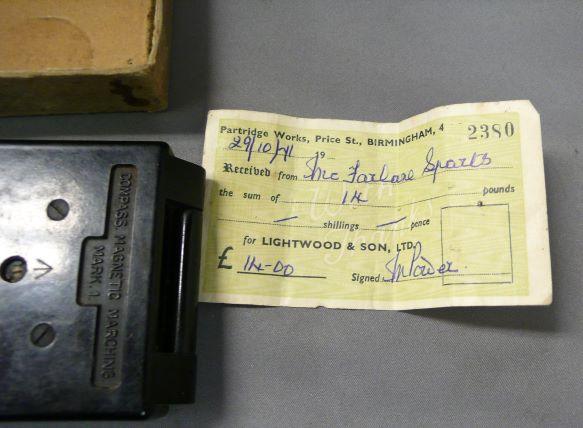 Partridge Works, Price St., BIRMINGHAM, 4 2380
29/10/71 19
Received from Mc Farlane Sparks
the sum of 14 pounds
— shillings — pence
for LIGHTWOOD & SON, LTD.
£ 14-00 Signed
COMPASS MAGNETIC MARCHING
MARK 1